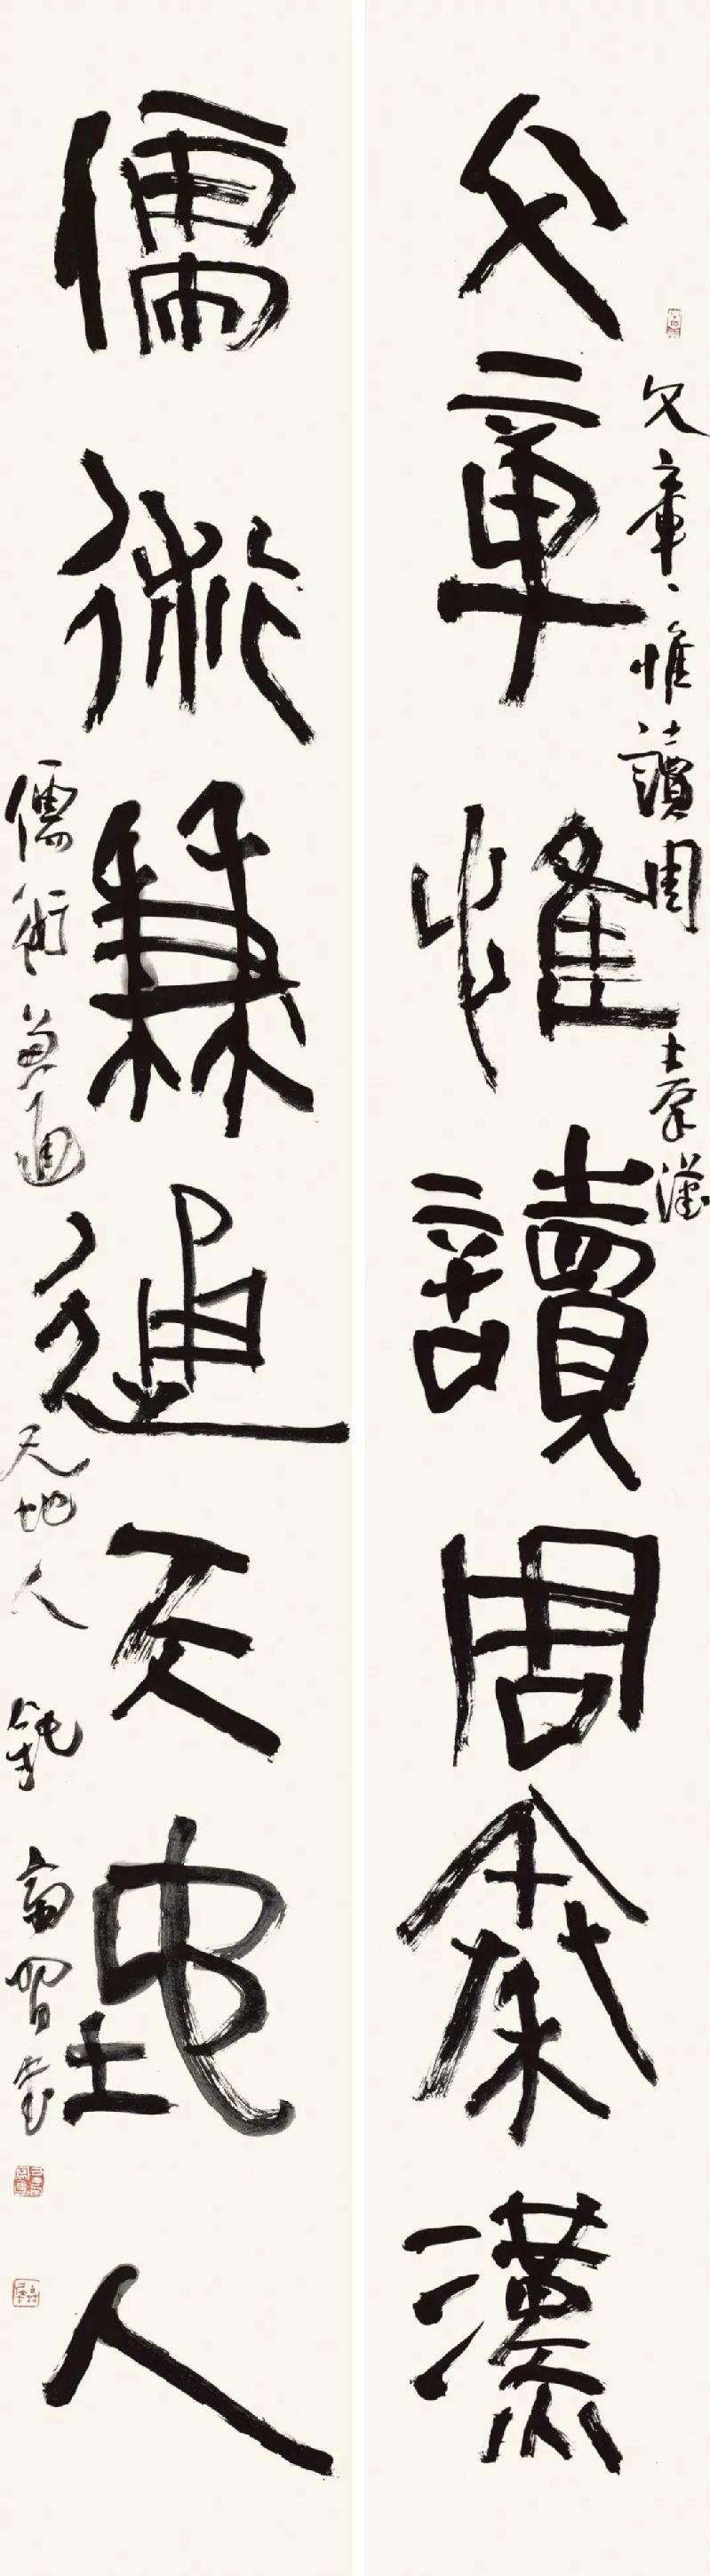 文章惟讀周秦漢
文章惟讀周秦漢
儒術兼通天地人
儒術兼通天地人